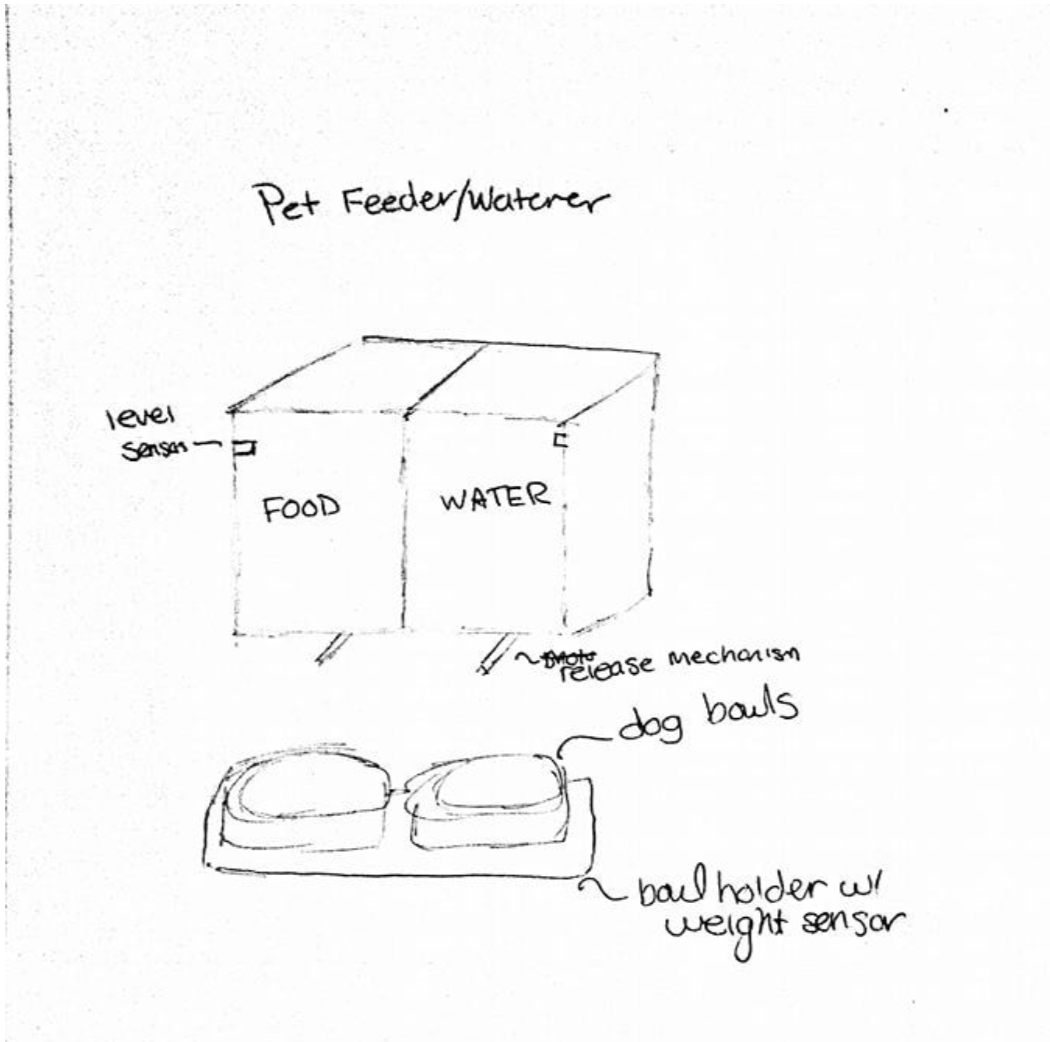 Pet Feeder/Waterer
level
sensor
FOOD
WATER
release mechanism
dog bowls
bowl holder w/
weight sensor